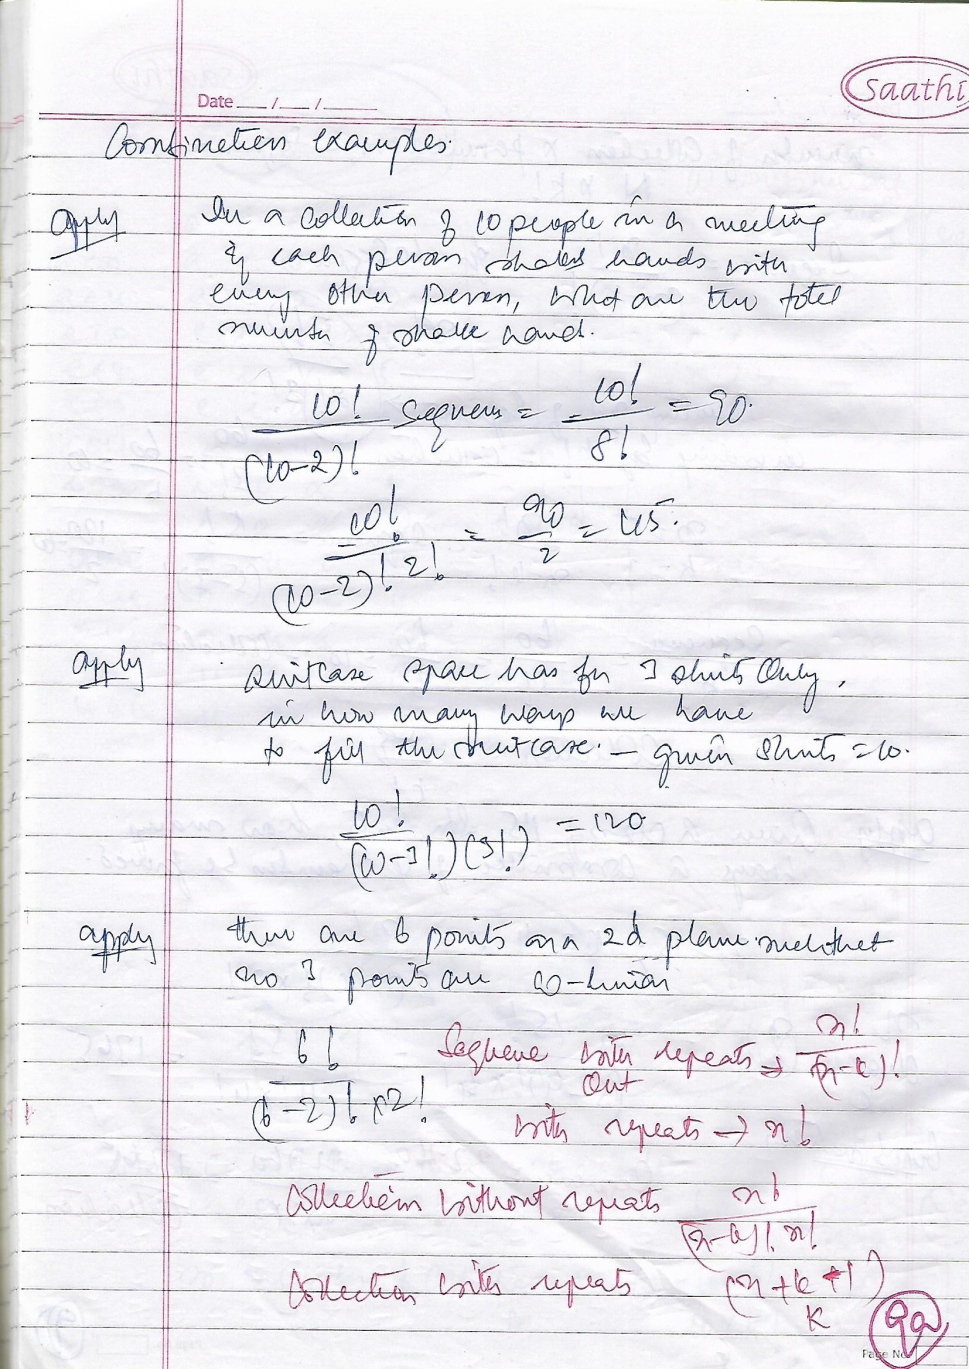 saathi
Date __/__/____
Combination examples.
apply In a collection of 10 people in a meeting
if each person shakes hands with
every other person, what are the total
number of shake hand.
10! / (10-2)! Sequences = 10! / 8! = 90.
10! / (10-2)! 2! = 90 / 2 = 45.
apply suitcase space has for 3 shirts Only,
in how many ways we have
to fill the suitcase. — given shirts = 10.
10! / (10-3!)(3!) = 120
apply there are 6 points on a 2d plane such that
no 3 points are co-linear
6! / (6-2)! x 2!
Sequence with out repeats → n! / (n-k)!
with repeats → n!
Collection without repeats n! / (n-k)! n!
Collection with repeats (n+k+1) k
Page No.
9a